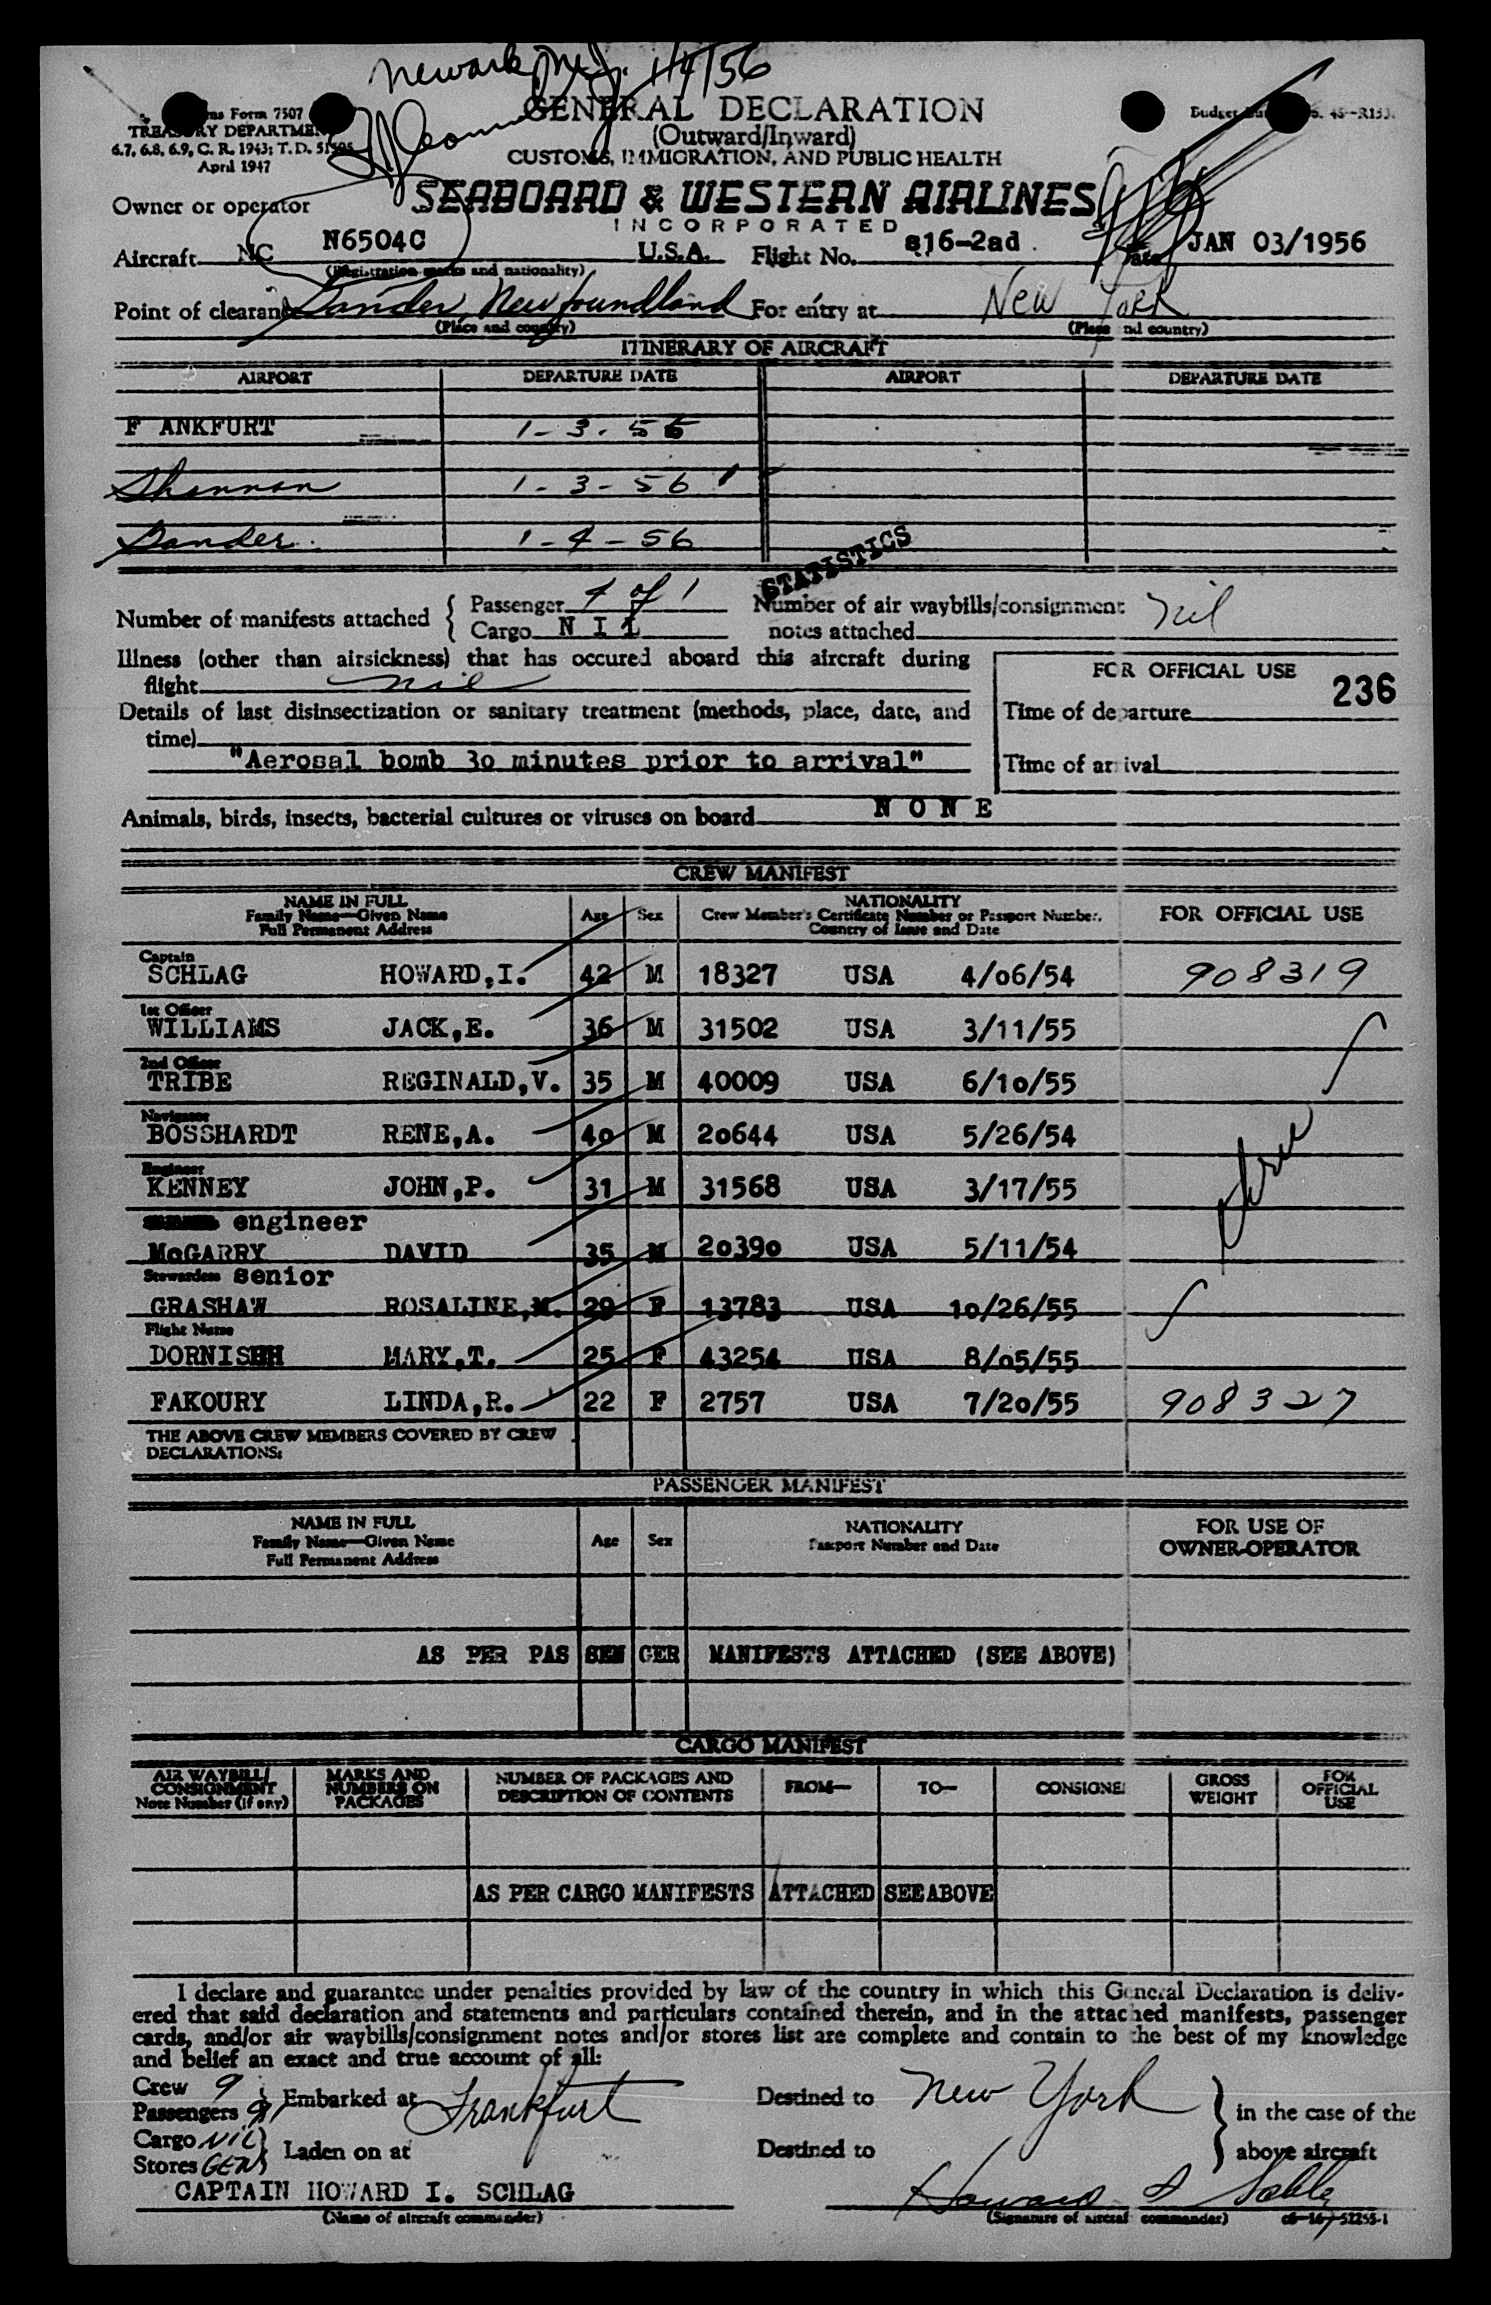 Newark, N.J. 1/4/56
Form 7507
TREASURY DEPARTMENT
6.7, 6.8, 6.9, C. R. 1943; T. D.
April 1947
GENERAL DECLARATION
(Outward/Inward)
CUSTOMS, IMMIGRATION, AND PUBLIC HEALTH
Owner or operator SEABOARD & WESTERN AIRLINES
INCORPORATED
Aircraft NC N6504C U.S.A. Flight No. s16-2ad Date JAN 03/1956
(Registration marks and nationality)
Point of clearance Gander, Newfoundland For entry at New York
(Place and country) (Place and country)
ITINERARY OF AIRCRAFT
AIRPORT DEPARTURE DATE AIRPORT DEPARTURE DATE
F ANKFURT 1-3-56
Shannon 1-3-56
Gander 1-4-56
STATISTICS
Number of manifests attached { Passenger 1 of 1 Number of air waybills/consignment
Cargo N I L notes attached nil
Illness (other than airsickness) that has occured aboard this aircraft during
flight nil
FOR OFFICIAL USE
236
Details of last disinsectization or sanitary treatment (methods, place, date, and
time)
Time of departure
"Aerosal bomb 3o minutes prior to arrival"
Time of arrival
Animals, birds, insects, bacterial cultures or viruses on board N O N E
CREW MANIFEST
NAME IN FULL
Family Name—Given Name
Full Permanent Address
Age Sex
NATIONALITY
Crew Member's Certificate Number or Passport Number,
Country of Issue and Date
FOR OFFICIAL USE
Captain
SCHLAG HOWARD,I. 42 M 18327 USA 4/o6/54 908319
1st Officer
WILLIAMS JACK,E. 36 M 31502 USA 3/11/55
2nd Officer
TRIBE REGINALD,V. 35 M 40009 USA 6/1o/55
Navigator
BOSSHARDT RENE,A. 4o M 2o644 USA 5/26/54
Engineer
KENNEY JOHN,P. 31 M 31568 USA 3/17/55
engineer
McGARRY DAVID 35 M 2o39o USA 5/11/54
Stewardess senior
GRASHAW ROSALINE,M. 29 F 13783 USA 1o/26/55
Flight Nurse
DORNISHH MARY,T. 25 F 43254 USA 8/o5/55
FAKOURY LINDA,R. 22 F 2757 USA 7/2o/55 908327
THE ABOVE CREW MEMBERS COVERED BY CREW
DECLARATIONS:
PASSENGER MANIFEST
NAME IN FULL
Family Name—Given Name
Full Permanent Address
Age Sex
NATIONALITY
Passport Number and Date
FOR USE OF
OWNER-OPERATOR
AS PER PAS SEN GER MANIFESTS ATTACHED (SEE ABOVE)
CARGO MANIFEST
AIR WAYBILL/
CONSIGNMENT
Note Number (if any)
MARKS AND
NUMBERS ON
PACKAGES
NUMBER OF PACKAGES AND
DESCRIPTION OF CONTENTS
FROM— TO— CONSIGNEE
GROSS
WEIGHT
FOR
OFFICIAL
USE
AS PER CARGO MANIFESTS ATTACHED SEE ABOVE
I declare and guarantee under penalties provided by law of the country in which this General Declaration is deliv-
ered that said declaration and statements and particulars contained therein, and in the attached manifests, passenger
cards, and/or air waybills/consignment notes and/or stores list are complete and contain to the best of my knowledge
and belief an exact and true account of all:
Crew 9
Passengers 91
Embarked at Frankfurt Destined to New York
in the case of the
Cargo NIL
Stores GEN
Laden on at Destined to above aircraft
CAPTAIN HOWARD I. SCHLAG
(Name of aircraft commander) (Signature of aircraft commander)